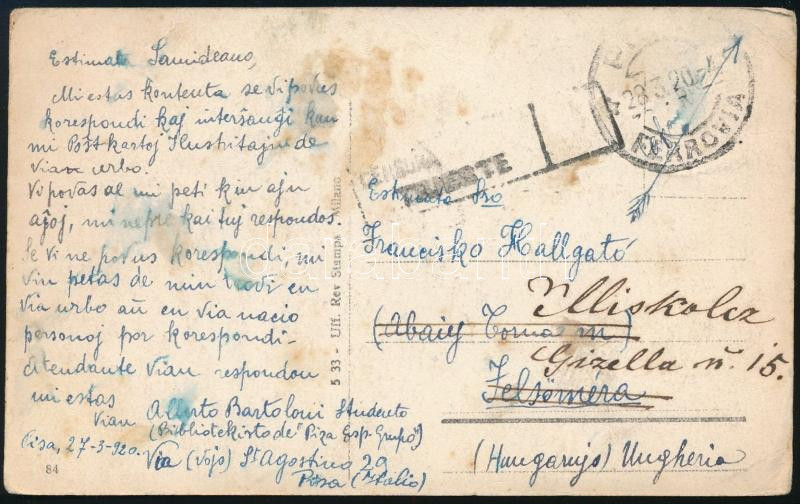 Estimata Samideano,
Mi estus kontenta se vi povus
korespondi kaj interŝanĝi kun
mi Poŝtkartoj Ilustritajn de
Via urbo.
Vi povas al mi peti kiun ajn
aĵoj, mi nepre kaj tuj respondos.
Se vi ne povus korespondi, mi
vin petas de min trovi en
Via urbo aŭ en Via nacio
personoj por korespondi-
Atendante Vian respondon
mi estas
Vian Alberto Bartolini Studento
(Bibliotekisto de "Piza Esp. Grupo")
Pisa, 27-3-920. Via (vojo) St Agostino 29
Pisa (Italio)
84
5 33 - Uff. Rev Stampa Milano
CENSURA
TRIESTE
28.3.20
FERROVIA
Estimata Sro
Francisko Hallgató
(Abaúj Torna m)
Miskolcz
Gizella u. 15.
Felsőméra
(Hungarujo) Ungheria